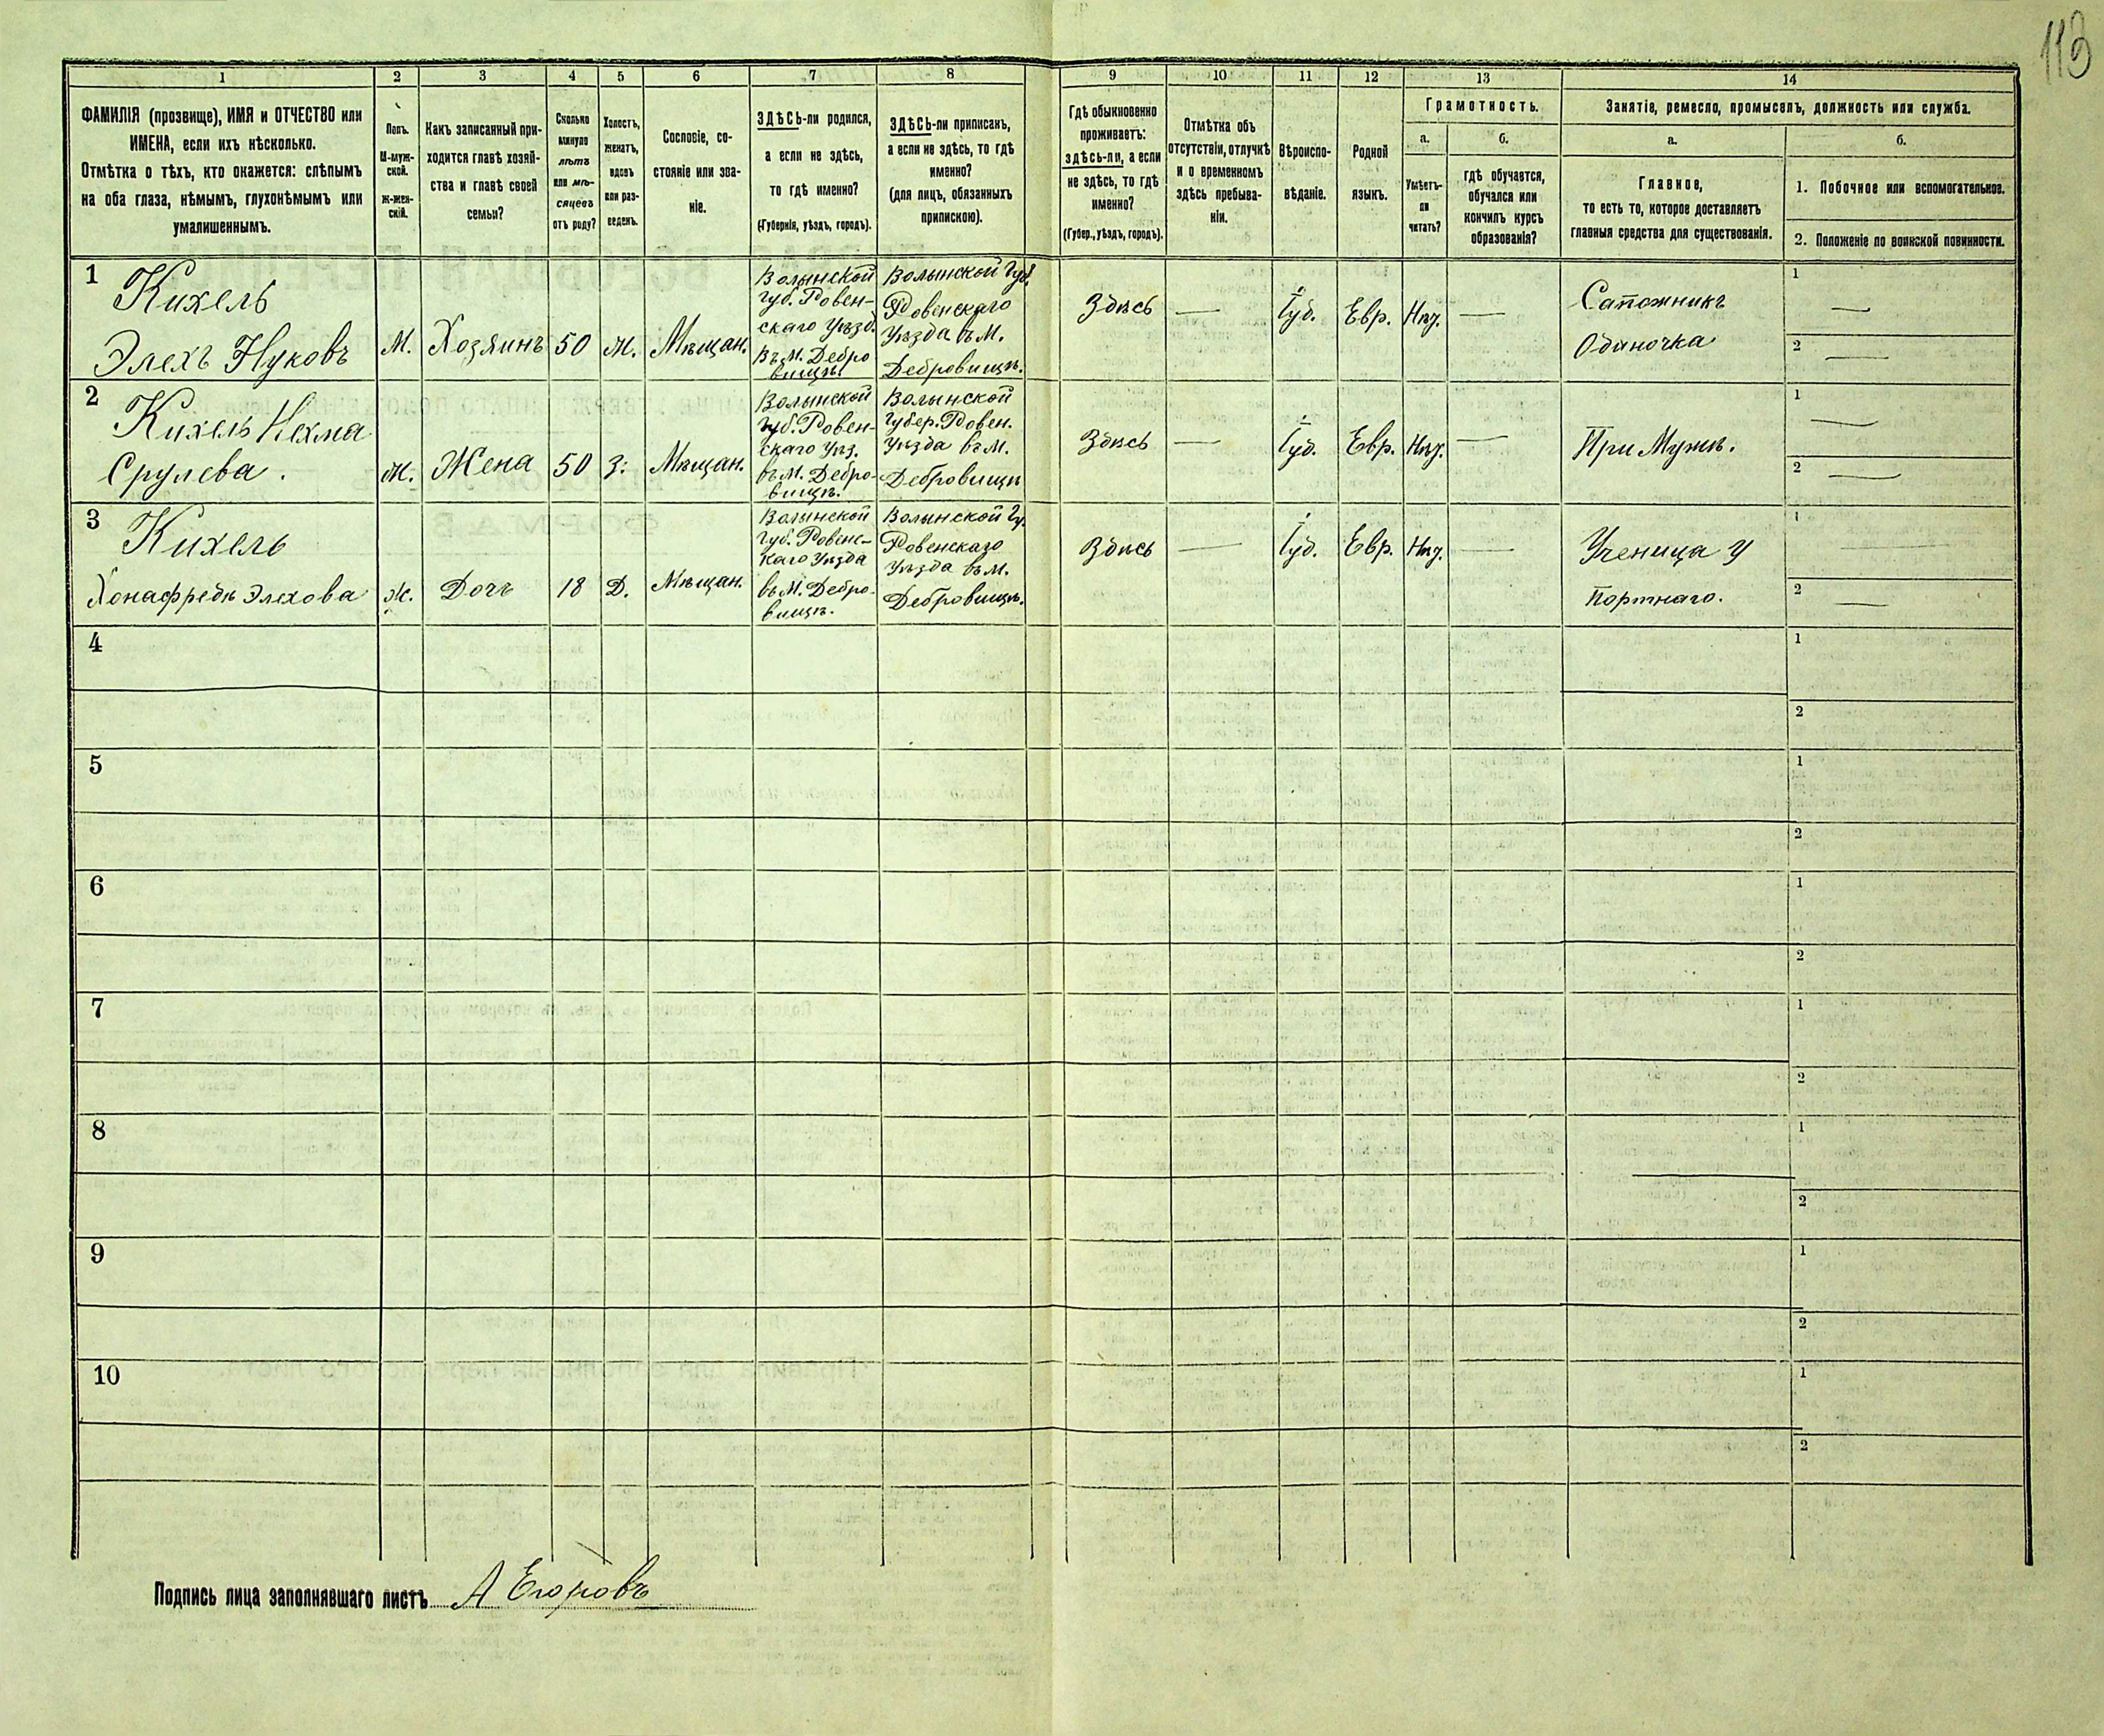 113
1 2 3 4 5 6 7 8 9 10 11 12 13 14
ФАМИЛІЯ (прозвище), ИМЯ и ОТЧЕСТВО или
ИМЕНА, если ихъ нѣсколько.
Отмѣтка о тѣхъ, кто окажется: слѣпымъ
на оба глаза, нѣмымъ, глухонѣмымъ или
умалишеннымъ.
Полъ.
М-муж-
ской.
Ж-жен-
скій.
Какъ записанный при-
ходится главѣ хозяй-
ства и главѣ своей
семьи?
Сколько
минуло
лѣтъ
или мѣ-
сяцевъ
отъ роду?
Холостъ,
женатъ,
вдовъ
или раз-
веденъ.
Сословіе, со-
стояніе или зва-
ніе.
ЗДѢСЬ-ли родился,
а если не здѣсь,
то гдѣ именно?
(Губернія, уѣздъ, городъ).
ЗДѢСЬ-ли приписанъ,
а если не здѣсь, то гдѣ
именно?
(для лицъ, обязанныхъ
припискою).
Гдѣ обыкновенно
проживаетъ:
здѣсь-ли, а если
не здѣсь, то гдѣ
именно?
(Губер., уѣздъ, городъ).
Отмѣтка объ
отсутствіи, отлучкѣ
и о временномъ
здѣсь пребыва-
ніи.
Вѣроиспо-
вѣданіе.
Родной
языкъ.
Грамотность.
а.
Умѣетъ-
ли
читать?
б.
гдѣ обучается,
обучался или
кончилъ курсъ
образованія?
Занятіе, ремесло, промыселъ, должность или служба.
а.
Главное,
то есть то, которое доставляетъ
главныя средства для существованія.
б.
1. Побочное или вспомогательное.
2. Положеніе по воинской повинности.
1
Кихель
Элехъ Нуковъ
М.
Хозяинъ
50
Ж.
Мѣщан.
Волынской
губ. Ровен-
скаго Уѣзд.
въ М. Дебро
вищѣ
Волынской Губ.
Ровенскаго
Уѣзда въ М.
Дебровищѣ.
Здѣсь
—
Іуд.
Евр.
Нѣт.
—
Сапожникъ
Одиночка
1 —
2 —
2
Кихель Нехма
Срулева.
Ж.
Жена
50
З.
Мѣщан.
Волынской
губ. Ровен-
скаго Уѣз.
въ М. Дебро-
вищѣ.
Волынской
Губер. Ровен.
Уѣзда въ М.
Дебровищѣ
Здѣсь
—
Іуд.
Евр.
Нѣт.
—
При Мужѣ.
1 —
2 —
3
Кихель
Элехова
Ж.
Дочь
18
Д.
Мѣщан.
Волынской
губ. Ровенс-
каго Уѣзда
въ М. Дебро-
вищѣ.
Волынской Гу.
Ровенскаго
Уѣзда въ М.
Дебровищѣ.
Здѣсь
—
Іуд.
Евр.
Нѣт.
—
Ученица у
портнаго.
1 —
2 —
4
1
2
5
1
2
6
1
2
7
1
2
8
1
2
9
1
2
10
1
2
Подпись лица заполнявшаго листъ А Егоровъ